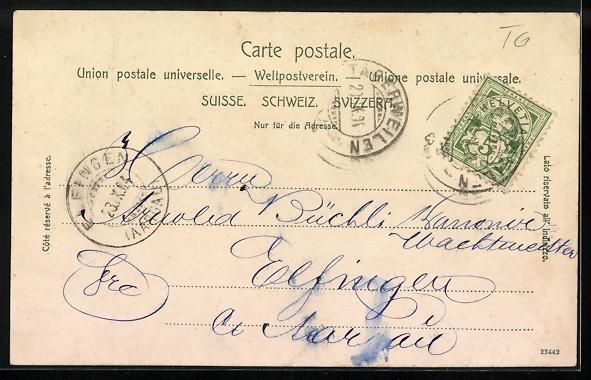 TG
Carte postale.
Union postale universelle. — Weltpostverein. — Unione postale universale.
SUISSE. SCHWEIZ. SVIZZERA.
Nur für die Adresse.
TÄGERWEILEN
HELVETIA
5
ELFINGEN
(AARGAU)
Côté réservé à l'adresse.
Lato riservato all'indirizzo.
Herrn
Arnold Büchli Kanonier
Wachtmeister
Elfingen
Aargau
22442